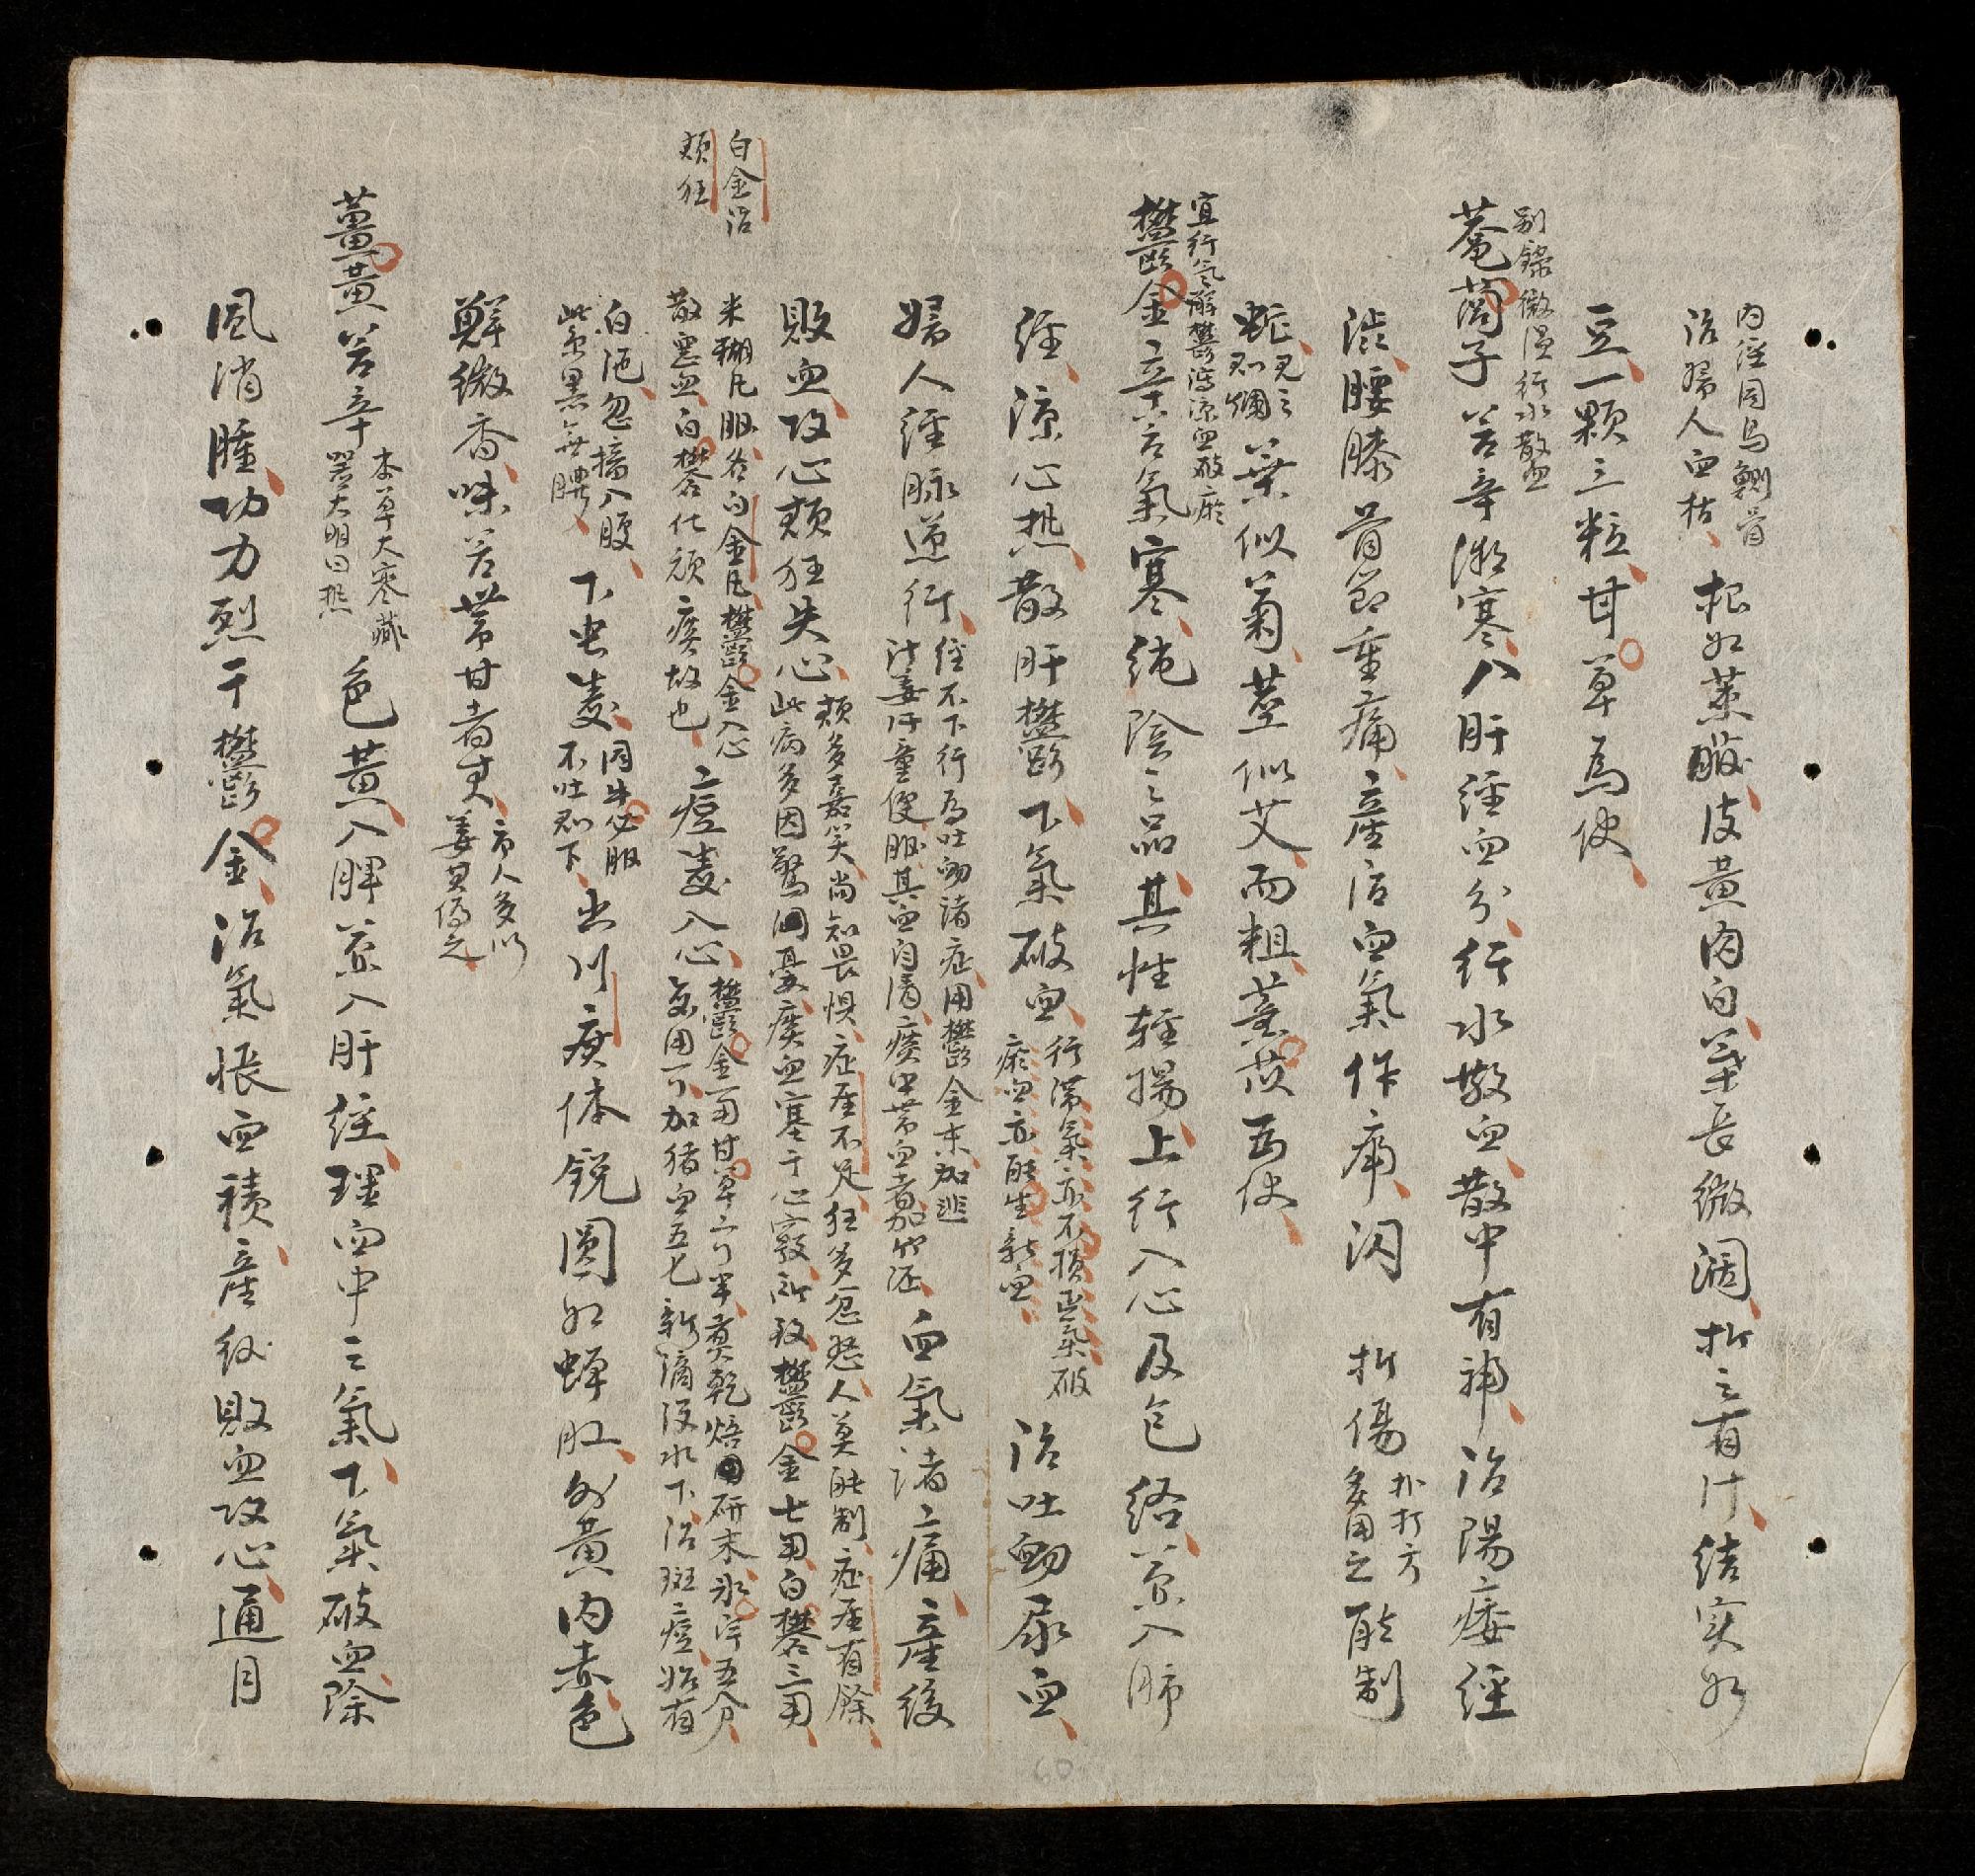 內經同烏鰂骨
治婦人血枯
根如菜菔皮黃肉白葉長微濶折之有汁結实如
豆一顆三粒甘草為使
別錄微溫行水散血
菴䕡子苦辛微寒入肝經血分行水散血散中有補治陽痿經
澁腰膝骨節重痛產后血氣作痛閃
折傷
扑打方
多用之
能制
蛇
見之
則爛
葉似菊莖似艾而粗薏苡為使
宜行气解鬱瀉凉血破瘀
鬱金辛苦氣寒純陰之品其性輕揚上行入心及包絡兼入肺
經凉心热散肝鬱下氣破血
行滯氣亦不損正氣破
瘀血亦能生新血
治吐衂尿血
婦人經脉逆行
經不下行為吐衂諸症用鬱金末加韭
汁姜汁童便服其血自清痰中带血者加竹瀝
血氣諸痛產後
敗血攻心顛狂失心
顛多喜笑尚知畏惧症屬不足狂多忿怒人莫能制症屬有餘
此病多因驚憂痰血塞于心竅所致鬱金七両白礬三両
白金治
顛狂
米糊凡服名白金凡鬱金入心
散惡血白礬化頑痰故也
痘毒入心
鬱金一両甘草二刂半煑乾焙研末氷片五分
每用一刂加猪血五七新滴汲水下治斑痘始有
白泡忽搐入腹
紫黑無膿
下虫毒
同升麻服
不吐則下
出川廣体銳圓如蟬肚外黃內赤色
鮮微香味苦带甘者真
市人多以
姜黃偽之
薑黃苦辛
本草大寒藏
器大明曰热
色黃入脾兼入肝經理血中之氣下氣破血除
風消腫功力烈于鬱金治氣脹血積產後敗血攻心通月